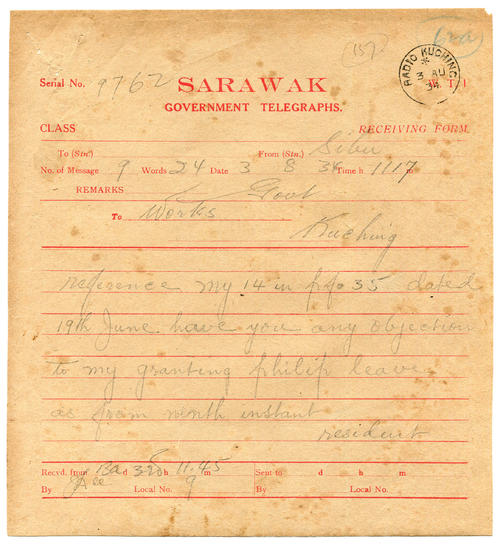 (157)
Serial No. 9762
SARAWAK
W. T. 1
RADIO KUCHING
3 AU
34
GOVERNMENT TELEGRAPHS.
CLASS
RECEIVING FORM.
To (Stn)
From (Stn.) Sibu
No. of Message 9 Words 24 Date 3 8 34 Time h 1117 m
REMARKS Govt
To Works
Kuching
reference my 14 in pfo 35 dated
19th June have you any objection
to my granting philip leave
as from ninth instant
resident
Recvd. from d h 11.45 m Sent to d h m
By Local No. 9 By Local No.